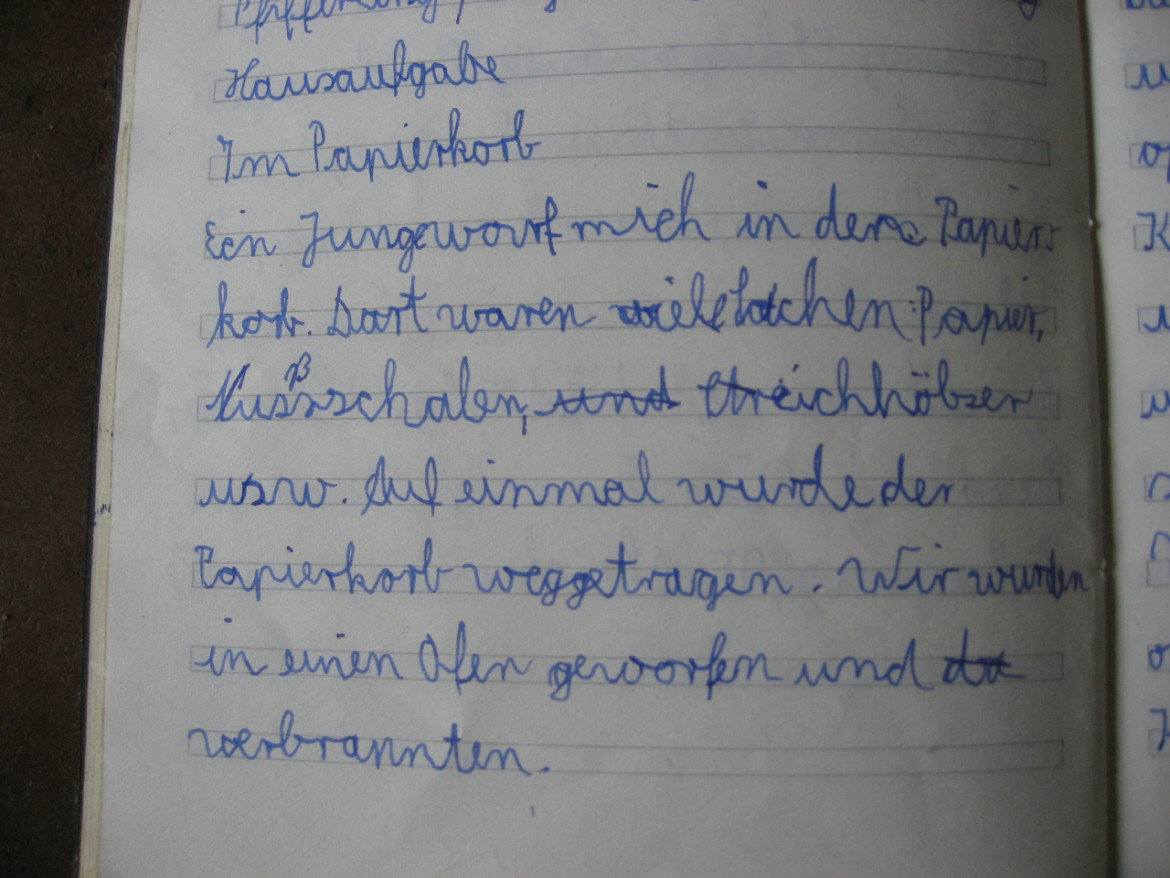 Hausaufgabe
Im Papierkorb
Ein Junge warf mich in den Papier-
korb. Dort waren viele Papier,
Nußschalen, und Streichhölzer
usw. Auf einmal wurde der
Papierkorb weggetragen. Wir wurden
in einen Ofen geworfen und
verbrannten.